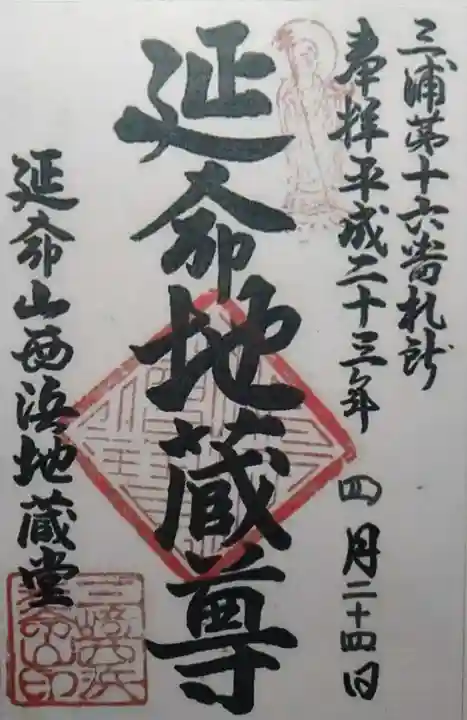 三浦第十六番札所
奉拝平成二十三年 四月二十四日
延命地蔵尊
延命山西浜地蔵堂
三崎西浜
延命山印